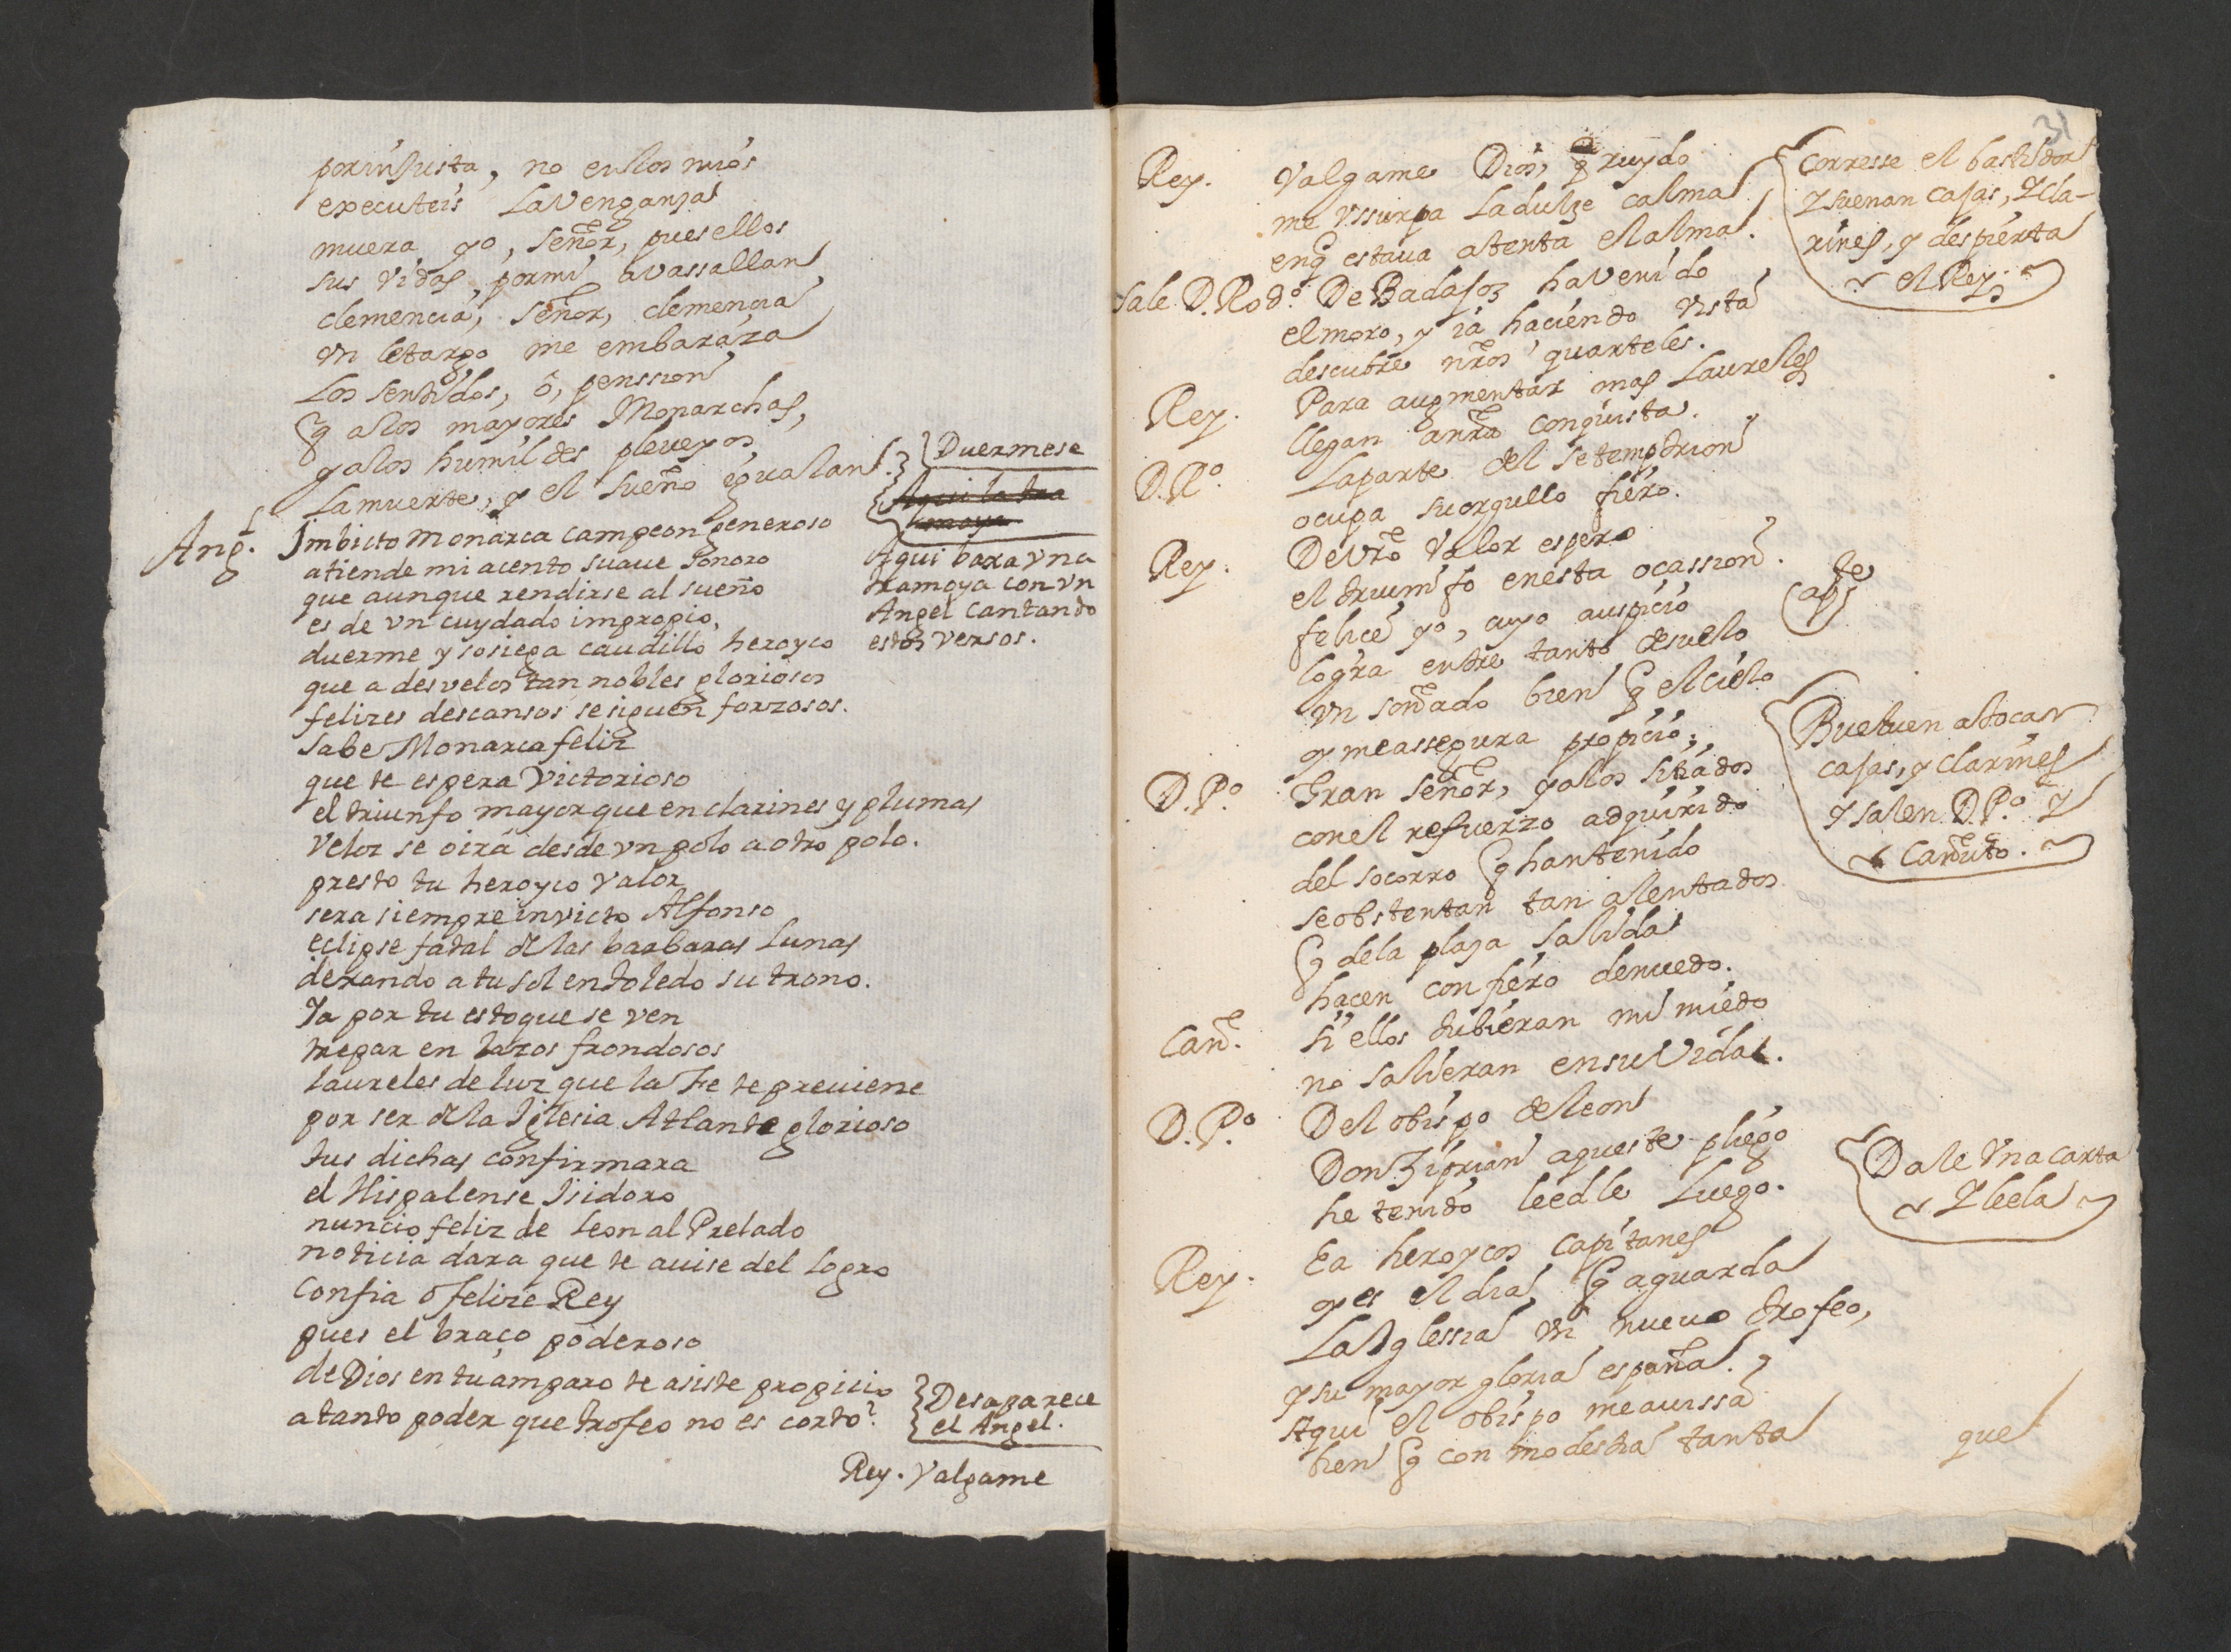 por injusta, no en los mios
executeis La Venganza
muera yo, señor, pues ellos
sus vidas, por mi avassallan
clemencia, señor, clemencia
vn letargo me embaraza
Los sentidos, ô, penssion
q̃ a los mayores Monarchas,
y a los humildes pleveyos
La muerte, y el sueño igualan.
} Duermese
Aqui la tra
moya
Aqui baxa vna
tramoya con vn
Angel cantando
estos versos.
Angl. Imbicto monarca campeon generoso
atiende mi acento suaue sonoro
que aunque rendirse al sueño
es de vn cuydado impropio,
duerme y sosiega caudillo heroyco
que a desvelos tan nobles gloriosos
felizes descansos se siguen forzosos.
Sabe Monarca feliz
que te espera Victorioso
el triunfo mayor que en clarines y plumas
Veloz se oirá desde vn polo a otro polo.
presto tu heroyco valor
sera siempre invicto Alfonso
eclipse fatal de las barbaras Lunas
dexando a tu sol en toledo su trono.
Ya por tu estoque se ven
trepar en lazos frondosos
laureles de luz que la Fe te preuiene
por ser de la Iglesia Atlante glorioso
tus dichas confirmara
el Hispalense Isidoro
nuncio feliz de Leon al Prelado
noticia dara que te auise del logro
confia ô felize Rey
pues el braço poderoso
de Dios en tu amparo te asiste propicio
a tanto poder que trofeo no es corto?
} Desaparece
el Angel.
Rey. Valgame
31
Rey. Valgame Dios, q̃ ruydo
me vssurpa La dulze calma
en q̃ estaua atenta el alma.
Corresse el bastidor
Y suenan cajas, Y cla-
rines, y despierta
el Rey.
Sale D. Rodº. De Badajoz ha Venido
el moro, y ia haciendo vista
descubre nr̃os quarteles.
Rey. Para augmentar mas Laureles
llegan a nr̃a conquista.
D. Rº. La parte del setemptrion
ocupa su orgullo fiero.
Rey. De Vr̃o Valor espero
el triumfo en esta ocassion.
apte
felice yo, cuyo auspicio
logra entre tanto desuelo
vn soñado bien q̃ el cielo
oy me assegura propicio.
Buelven a tocar
cajas, y clarines
Y salen D. Pº. Y
Cañuto.
D. Pº. Gran señor, ya los sitiados
con el refuerzo adquirido
del socorro q̃ han tenido
se obstentan tan alentados
q̃ de la plaza salida
hacen con fiero denuedo.
Cañ. Si ellos tubieran mi miedo
no salieran en su Vida.
D. Pº. Del obispo de leon
Don Ziprian aqueste pliego
he tenido leedle Luego.
Dale Vna carta
Y leela
Rey. Ea heroycos capitanes
oy es el dia, q̃ aguarda
La Yglessia vn nueuo trofeo,
y su mayor gloria españa.
Aqui el obispo me auissa
bien q̃ con modestia tanta
que